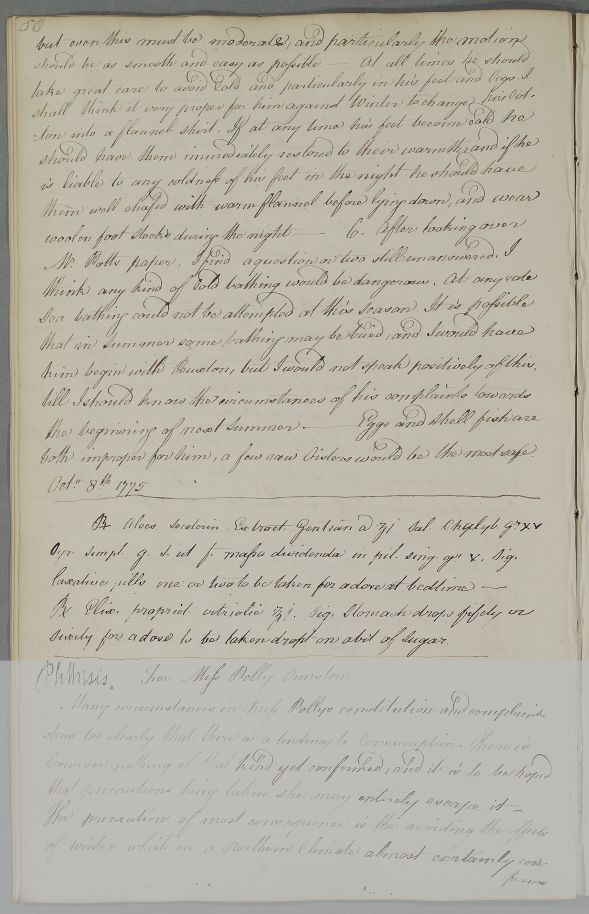 58
but even this must be moderate, and particularly the motion
should be as smooth and easy as possible — At all times he should
take great care to avoid Cold and particularly in his feet and Legs. I
shall think it very proper for him against Winter to change his Cot-
-ton into a flannel shirt. If at any time his feet become Cold he
should have them immediately restored to their warmth, and if he
is liable to any coldness of his feet in the night he should have
them well chafed with warm flannel before lying down, and wear
woolen foot Socks during the night — 6. After looking over
Mr. Potts paper. I find a question or two still unanswered. I
think any kind of Cold bathing would be dangerous. At any rate
Sea bathing could not be attempted at this season. It is possible
that in summer some bathing may be tried, and I would have
him begin with Buxton, but I would not speak positively of this,
till I should know the circumstances of his complaints towards
the beginning of next summer. — Eggs and shell fish are
both improper for him, a few raw Oisters would be the most safe.
Octr. 8th 1775
℞ Aloes Socotorin. Extract. Gentian a ʒj Sal. Chalyb. grs xv
Syr. simpl. q. s. ut f. massa dividenda in pil. sing. grs v. Sig.
Laxative pills one or two to be taken for a dose at bedtime —
℞ Elix. propriet. vitriolic ℥j. Sig. Stomach drops fifty or
sixty for a dose to be taken dropt on a bit of Sugar.
Phthisis. For Miss Polly Ormston
Many circumstances in Miss Pollys constitution and complaints
shew too clearly that there is a tendency to Consumption. There is
however nothing of that kind yet confirmed, and it is to be hoped
that precautions being taken she may entirely escape it —
The precaution of most consequence is the avoiding the effects
of winter which in a Northern Climate almost certainly con-
firms